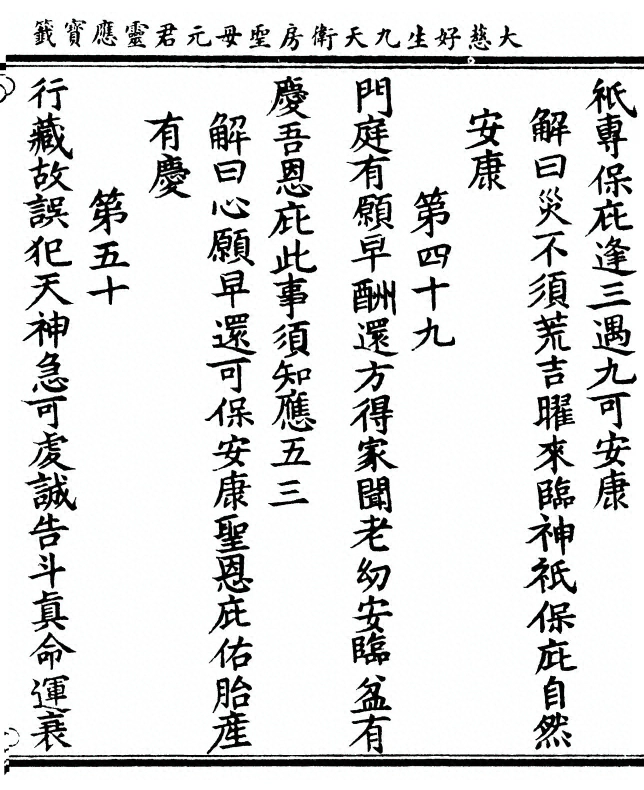 大慈好生九天衛房聖母元君靈應寶籤
祇專保庇逢三遇九可安康
解曰災不須荒吉曜來臨神祇保庇自然
安康
第四十九
門庭有願早酬還方得家聞老幼安臨盆有
慶吾恩庇此事須知應五三
解曰心願早還可保安康聖恩庇佑胎產
有慶
第五十
行藏故誤犯天神急可虔誠告斗真命運衰